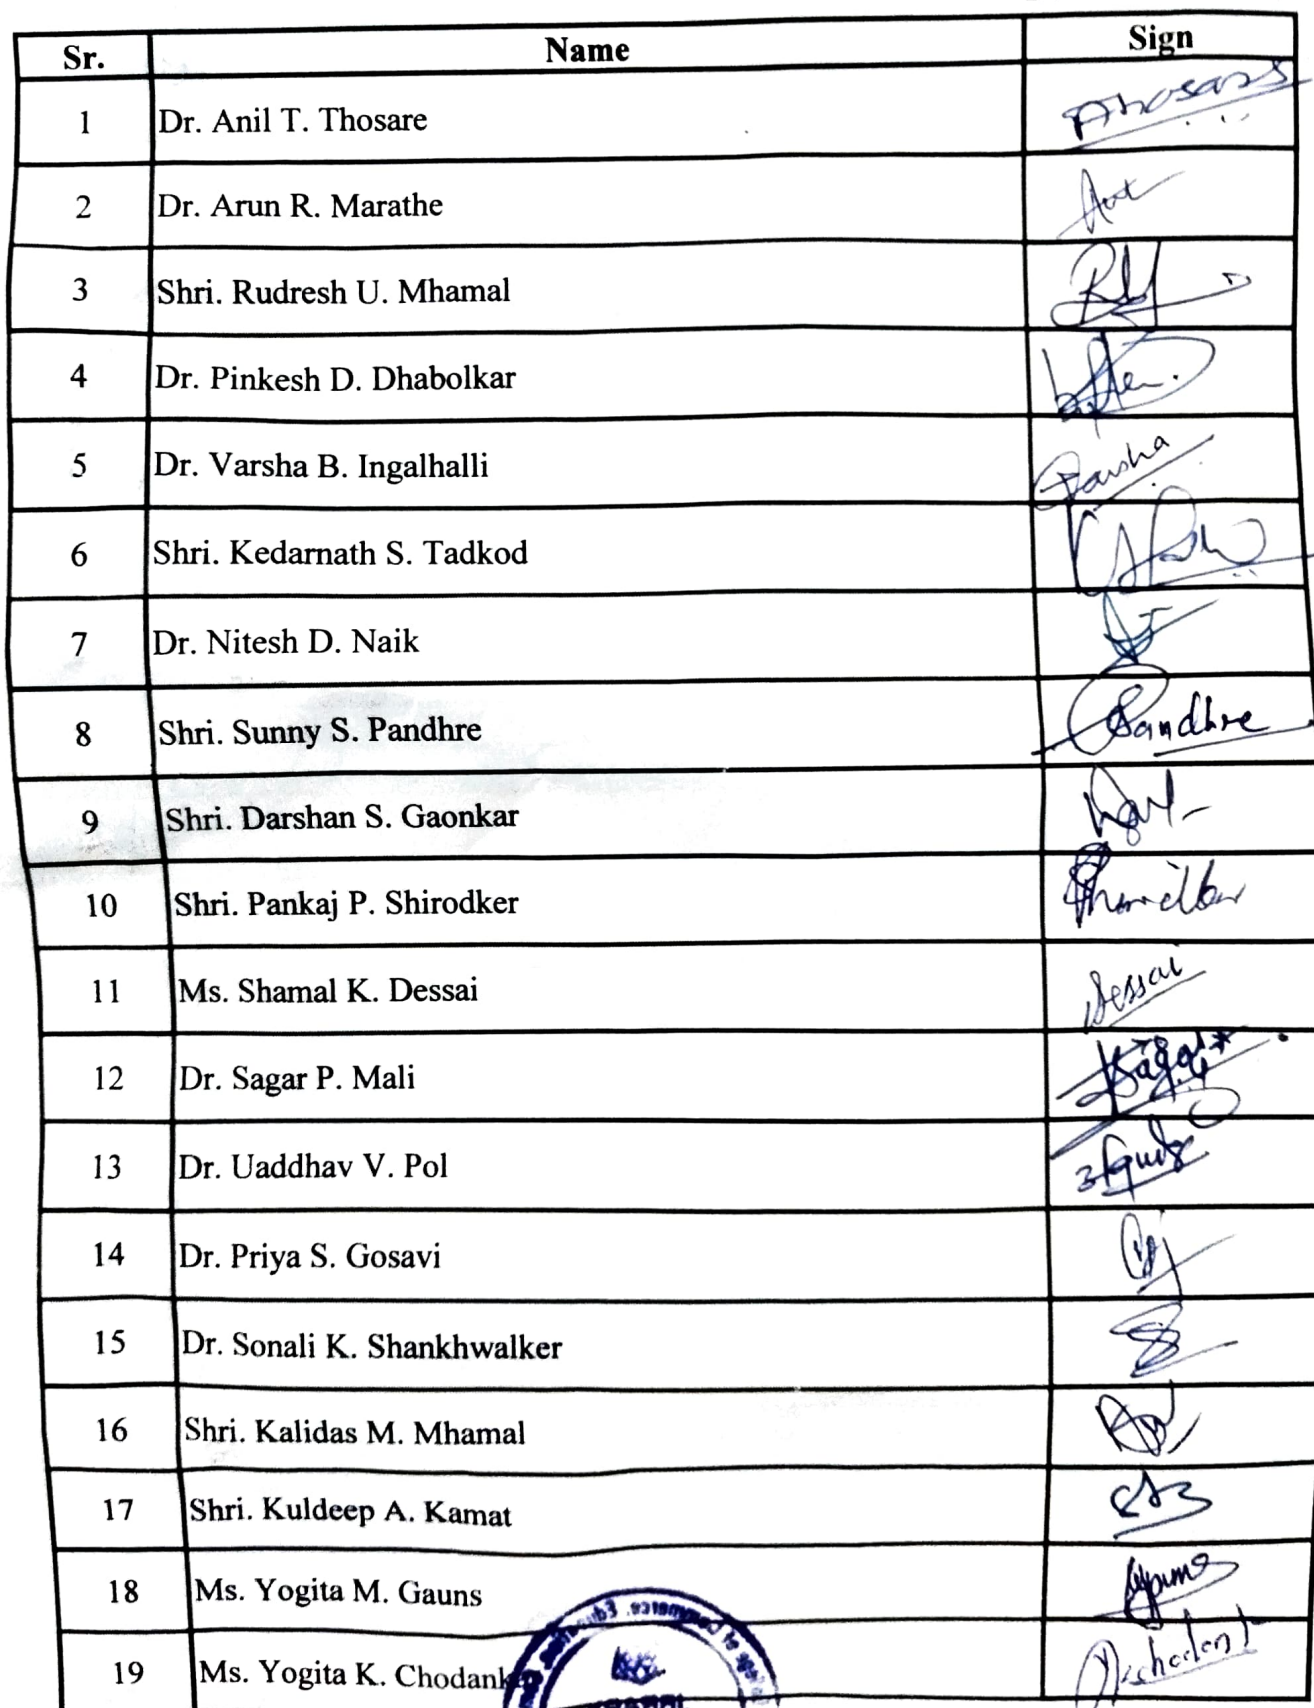 Sr. Name Sign
1 Dr. Anil T. Thosare Thosare
2 Dr. Arun R. Marathe
3 Shri. Rudresh U. Mhamal
4 Dr. Pinkesh D. Dhabolkar
5 Dr. Varsha B. Ingalhalli Varsha
6 Shri. Kedarnath S. Tadkod
7 Dr. Nitesh D. Naik
8 Shri. Sunny S. Pandhre Pandhre
9 Shri. Darshan S. Gaonkar
10 Shri. Pankaj P. Shirodker
11 Ms. Shamal K. Dessai Dessai
12 Dr. Sagar P. Mali Sagar
13 Dr. Uaddhav V. Pol
14 Dr. Priya S. Gosavi
15 Dr. Sonali K. Shankhwalker
16 Shri. Kalidas M. Mhamal
17 Shri. Kuldeep A. Kamat
18 Ms. Yogita M. Gauns
19 Ms. Yogita K. Chodank